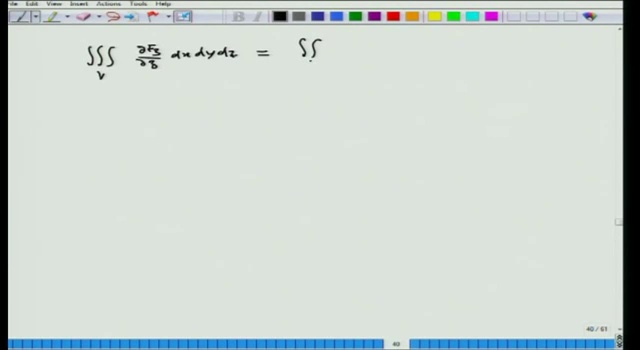 File Edit View Insert Actions Tools Help
∭_V ∂F₃/∂z dx dy dz = ∬
40 / 61
40